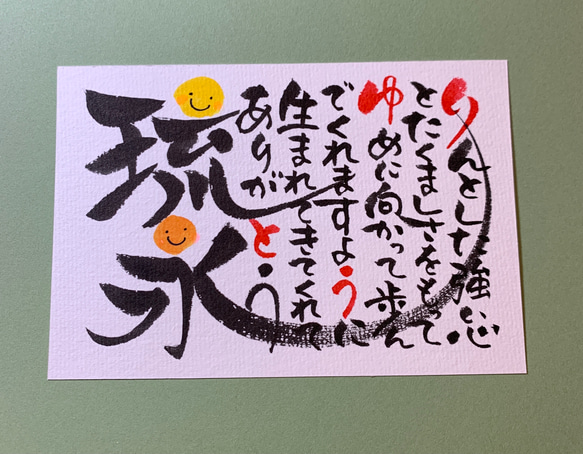 りんとした強い心
とたくましさをもって
ゆめに向かって歩ん
でくれますように
生まれてきてくれて
ありがとう
琉永